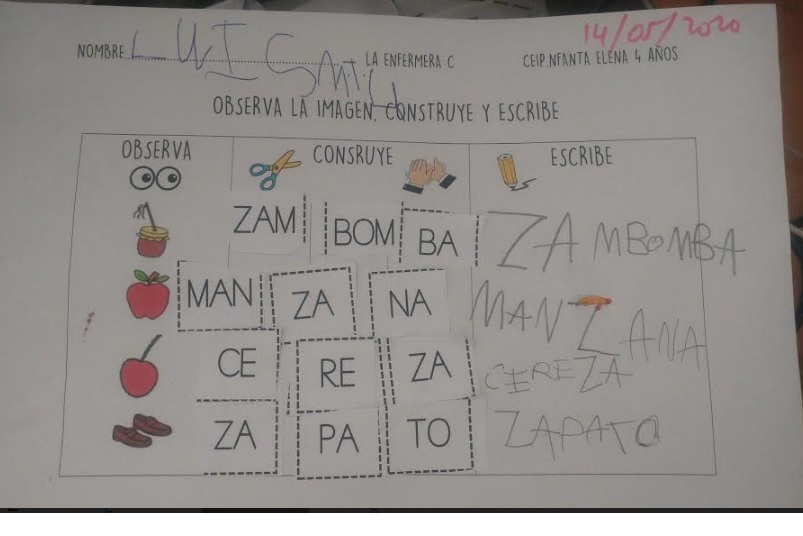 14/05/2020
NOMBRE LUIS LA ENFERMERA C CEIP.NFANTA ELENA 4 AÑOS
OBSERVA LA IMAGEN, CONSTRUYE Y ESCRIBE
OBSERVA CONSRUYE ESCRIBE
ZAM BOM BA ZAMBOMBA
MAN ZA NA MANZANA
CE RE ZA CEREZA
ZA PA TO ZAPATO